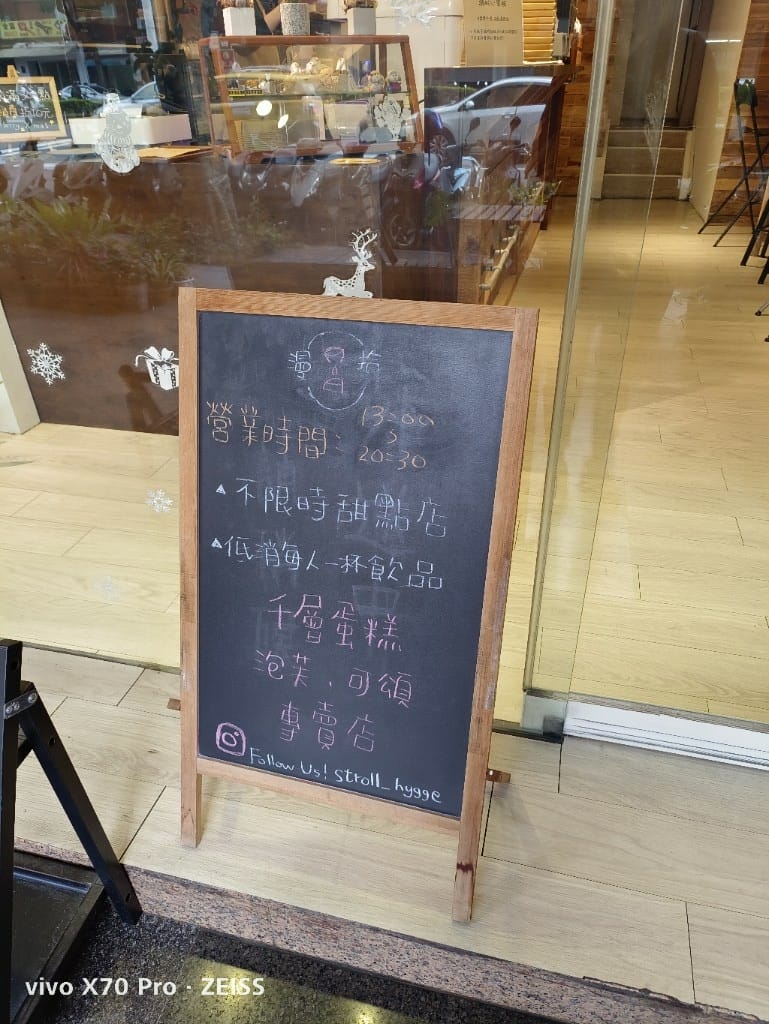 漫 拾
營業時間: 13:00
~
20:30
▲不限時甜點店
▲低消每人一杯飲品
千層蛋糕
泡芙、可頌
專賣店
Follow Us! stroll_hygge
vivo X70 Pro · ZEISS